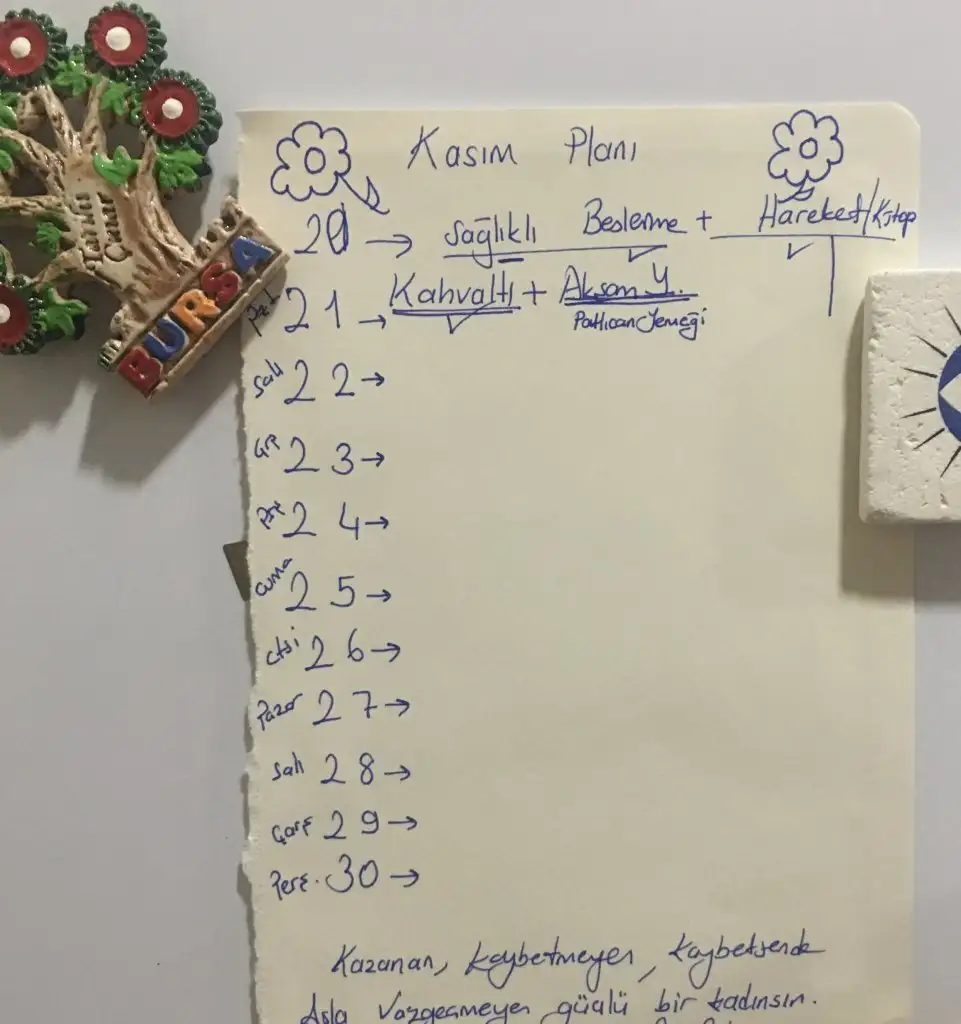 Kasım Planı
20 → Sağlıklı Beslenme + Hareket/Kitap
21 → Kahvaltı + Akşam Y.
Patlıcan Yemeği
Salı 22 →
23 →
24 →
Cuma 25 →
Ctsi 26 →
Pazar 27 →
Salı 28 →
Çarş 29 →
Perş. 30 →
Kazanan, kaybetmeyen, kaybetsende
Asla Vazgeçmeyen güçlü bir kadınsın.
BURSA